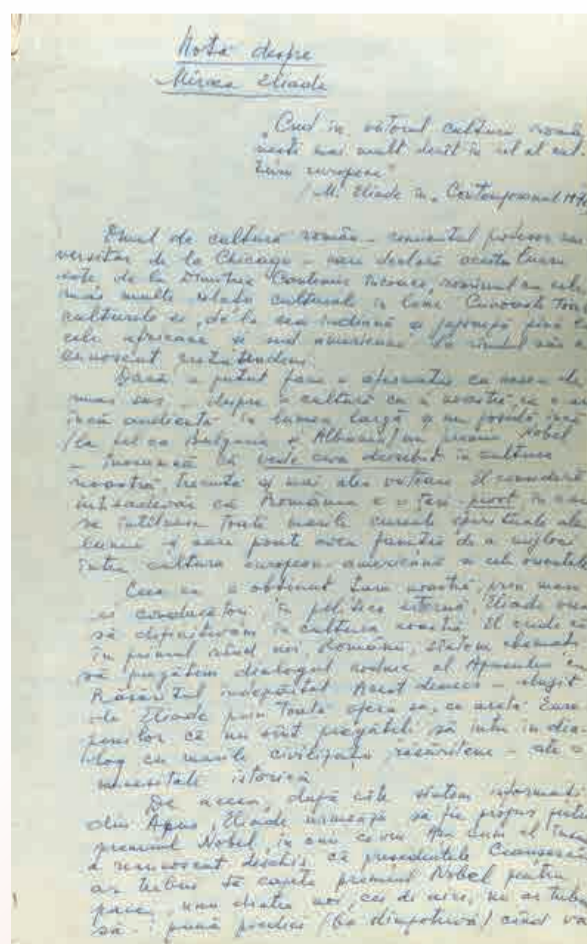 Notă despre
Mircea Eliade
„Cred în viitorul culturii româ
nești mai mult decît în cel al cul
turii europene"
/M. Eliade în „Contemporanul 19
Omul de cultură român – renumitul profesor uni
versitar de la Chicago – care declară acestui lucru
este, de la Dimitrie Cantemir încoace, românul cu cele
mai multe relații culturale în lume. Cunoaște toate
culturile ei, de la cea indiană și japoneză pînă la
cele africane și sud americane la rîndul său a
cunoscut
Dacă a putut face o afirmație ca aceea de
mai sus – despre o cultură ca a noastră, ce n-are
încă audiență în lumea largă și nu posedă încă
/la fel ca Bulgaria și Albania/ un premiu Nobel
– înseamnă că vede ceva deosebit în cultura
noastră, trecută și mai ales viitoare. El consideră
într-adevăr că România e o țară pivot, în care
se întîlnesc toate marile curente spirituale ale
lumii și care poate avea funcția de a mijloci
între cultura europeană americană și cele orientale
Ceea ce a obținut țara noastră, prin mare
ei conducători în politica externă, Eliade vrea
să dobîndim în cultura noastră. El crede că
în primul rînd noi, Românii, sîntem chemați
să pregătim dialogul rodnic al Apusului cu
Răsăritul îndepărtat. Acest demers – slujit
de Eliade prin toată opera sa, ce arată Euro
penilor că nu sînt pregătiți să intre în dia-
log cu marile civilizații răsăritene – ale
necesitate istorică
De aceea, după cîte sîntem informați
din Apus, Eliade urmează să fie propus pentru
premiul Nobel, în anu ce vin. Așa cum el însuși
a recunoscut deschis că președintele Ceaușescu
ar trebui să capete premiul Nobel pentru
pace, unii dintre noi, cei de aici, nu ar trebui
să pună piedici /ba dimpotrivă/ cînd va